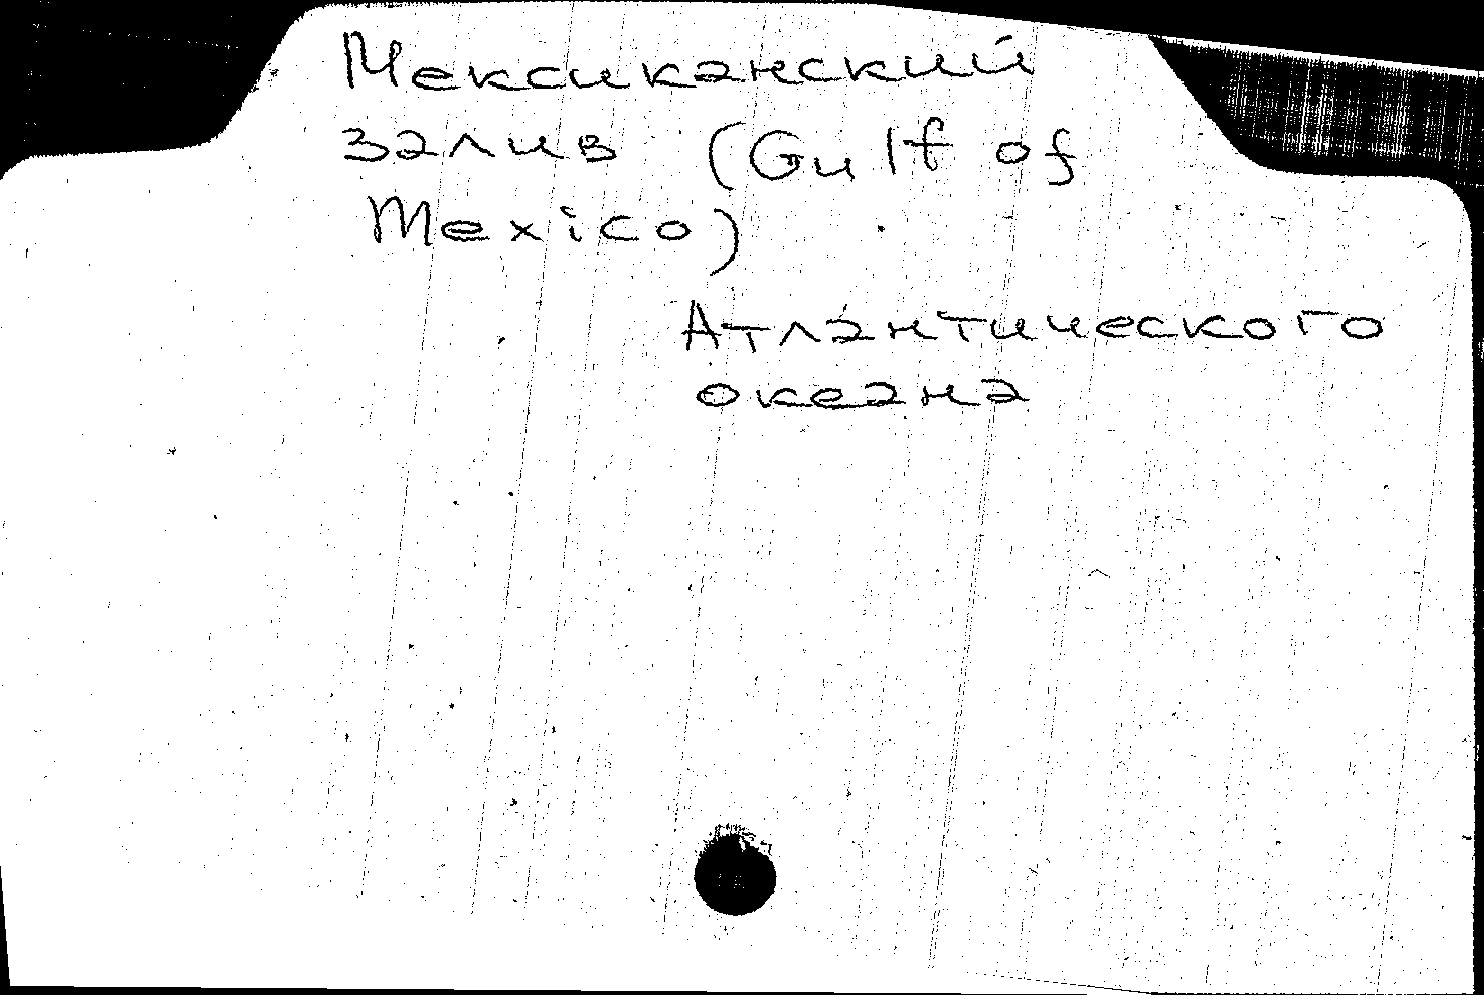 Мексиканский
залив (Gulf of
Mexico)
Атлантического
океана